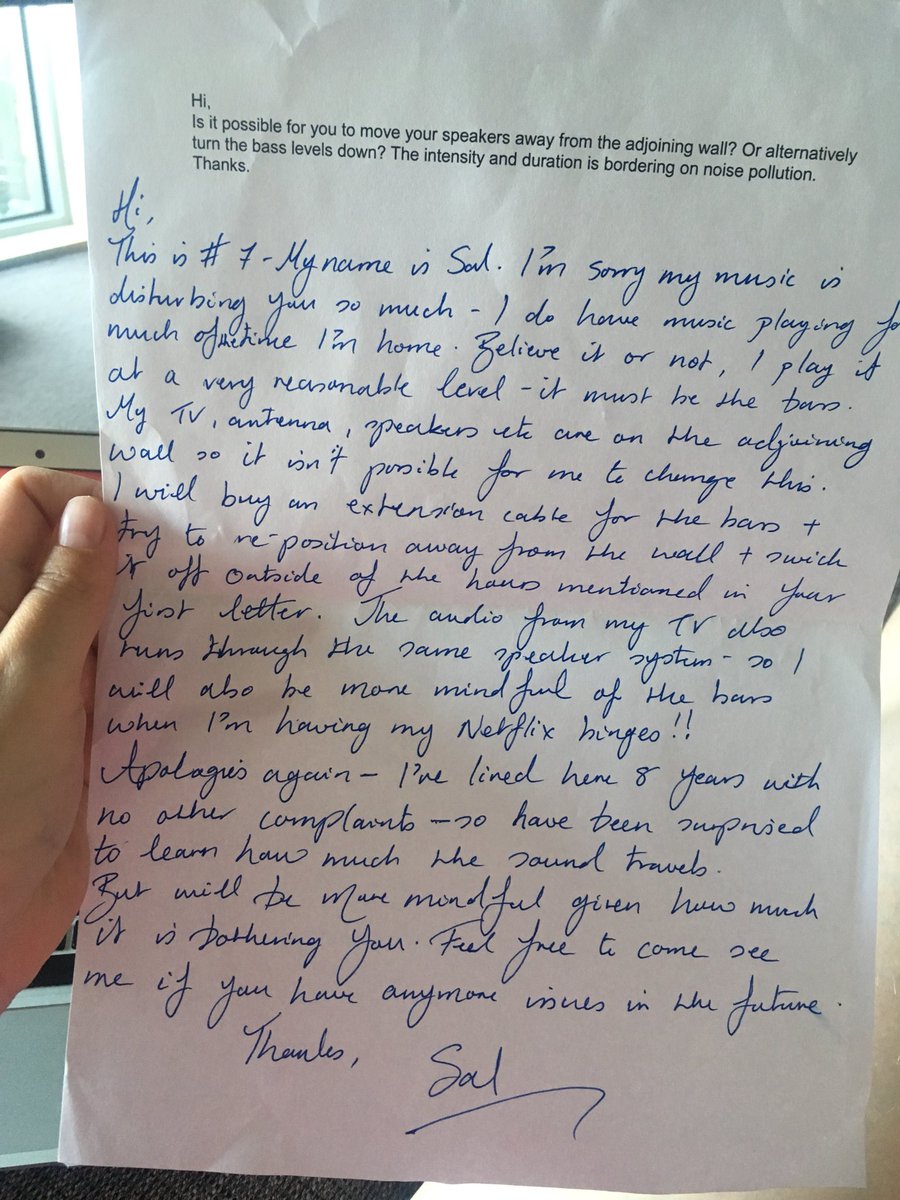 Hi,
Is it possible for you to move your speakers away from the adjoining wall? Or alternatively
turn the bass levels down? The intensity and duration is bordering on noise pollution.
Thanks.
Hi,
This is # 7 - My name is Sal. I'm sorry my music is
disturbing you so much - I do have music playing for
much of the time I'm home. Believe it or not, I play it
at a very reasonable level - it must be the bass.
My TV, antenna, speakers etc are on the adjoining
wall so it isn't possible for me to change this.
I will buy an extension cable for the bass +
try to re-position away from the wall + swich
it off outside of the hours mentioned in your
first letter. The audio from my TV also
runs through the same speaker system - so I
will also be more mindful of the bass
when I'm having my Netflix binges!!
Apologies again - I've lived here 8 years with
no other complaints - so have been surprised
to learn how much the sound travels.
But will be more mindful given how much
it is bothering you. Feel free to come see
me if you have anymore issues in the future.
Thanks,
Sal